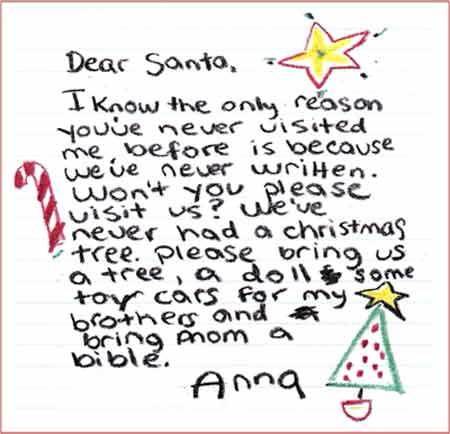 Dear Santa,
I know the only reason
youv'e never visited
me before is because
we've never written.
Won't you please
visit us? We've
never had a christmas
tree. please bring us
a tree, a doll some
toy cars for my
brothers and
bring mom a
bible.
Anna